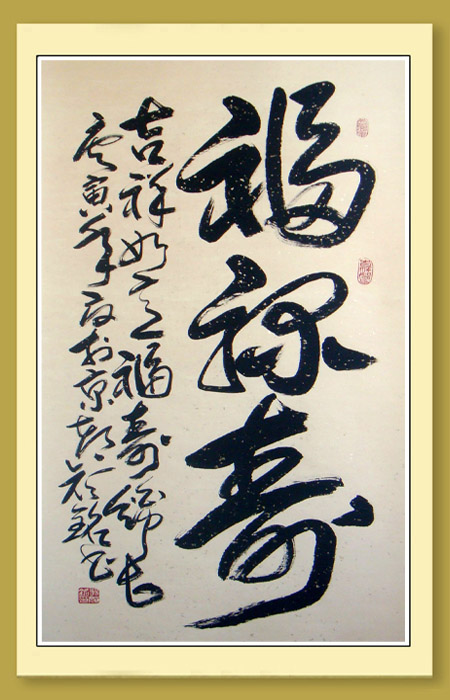 福禄寿
吉祥如意福寿绵长
庚寅年于京都铭书